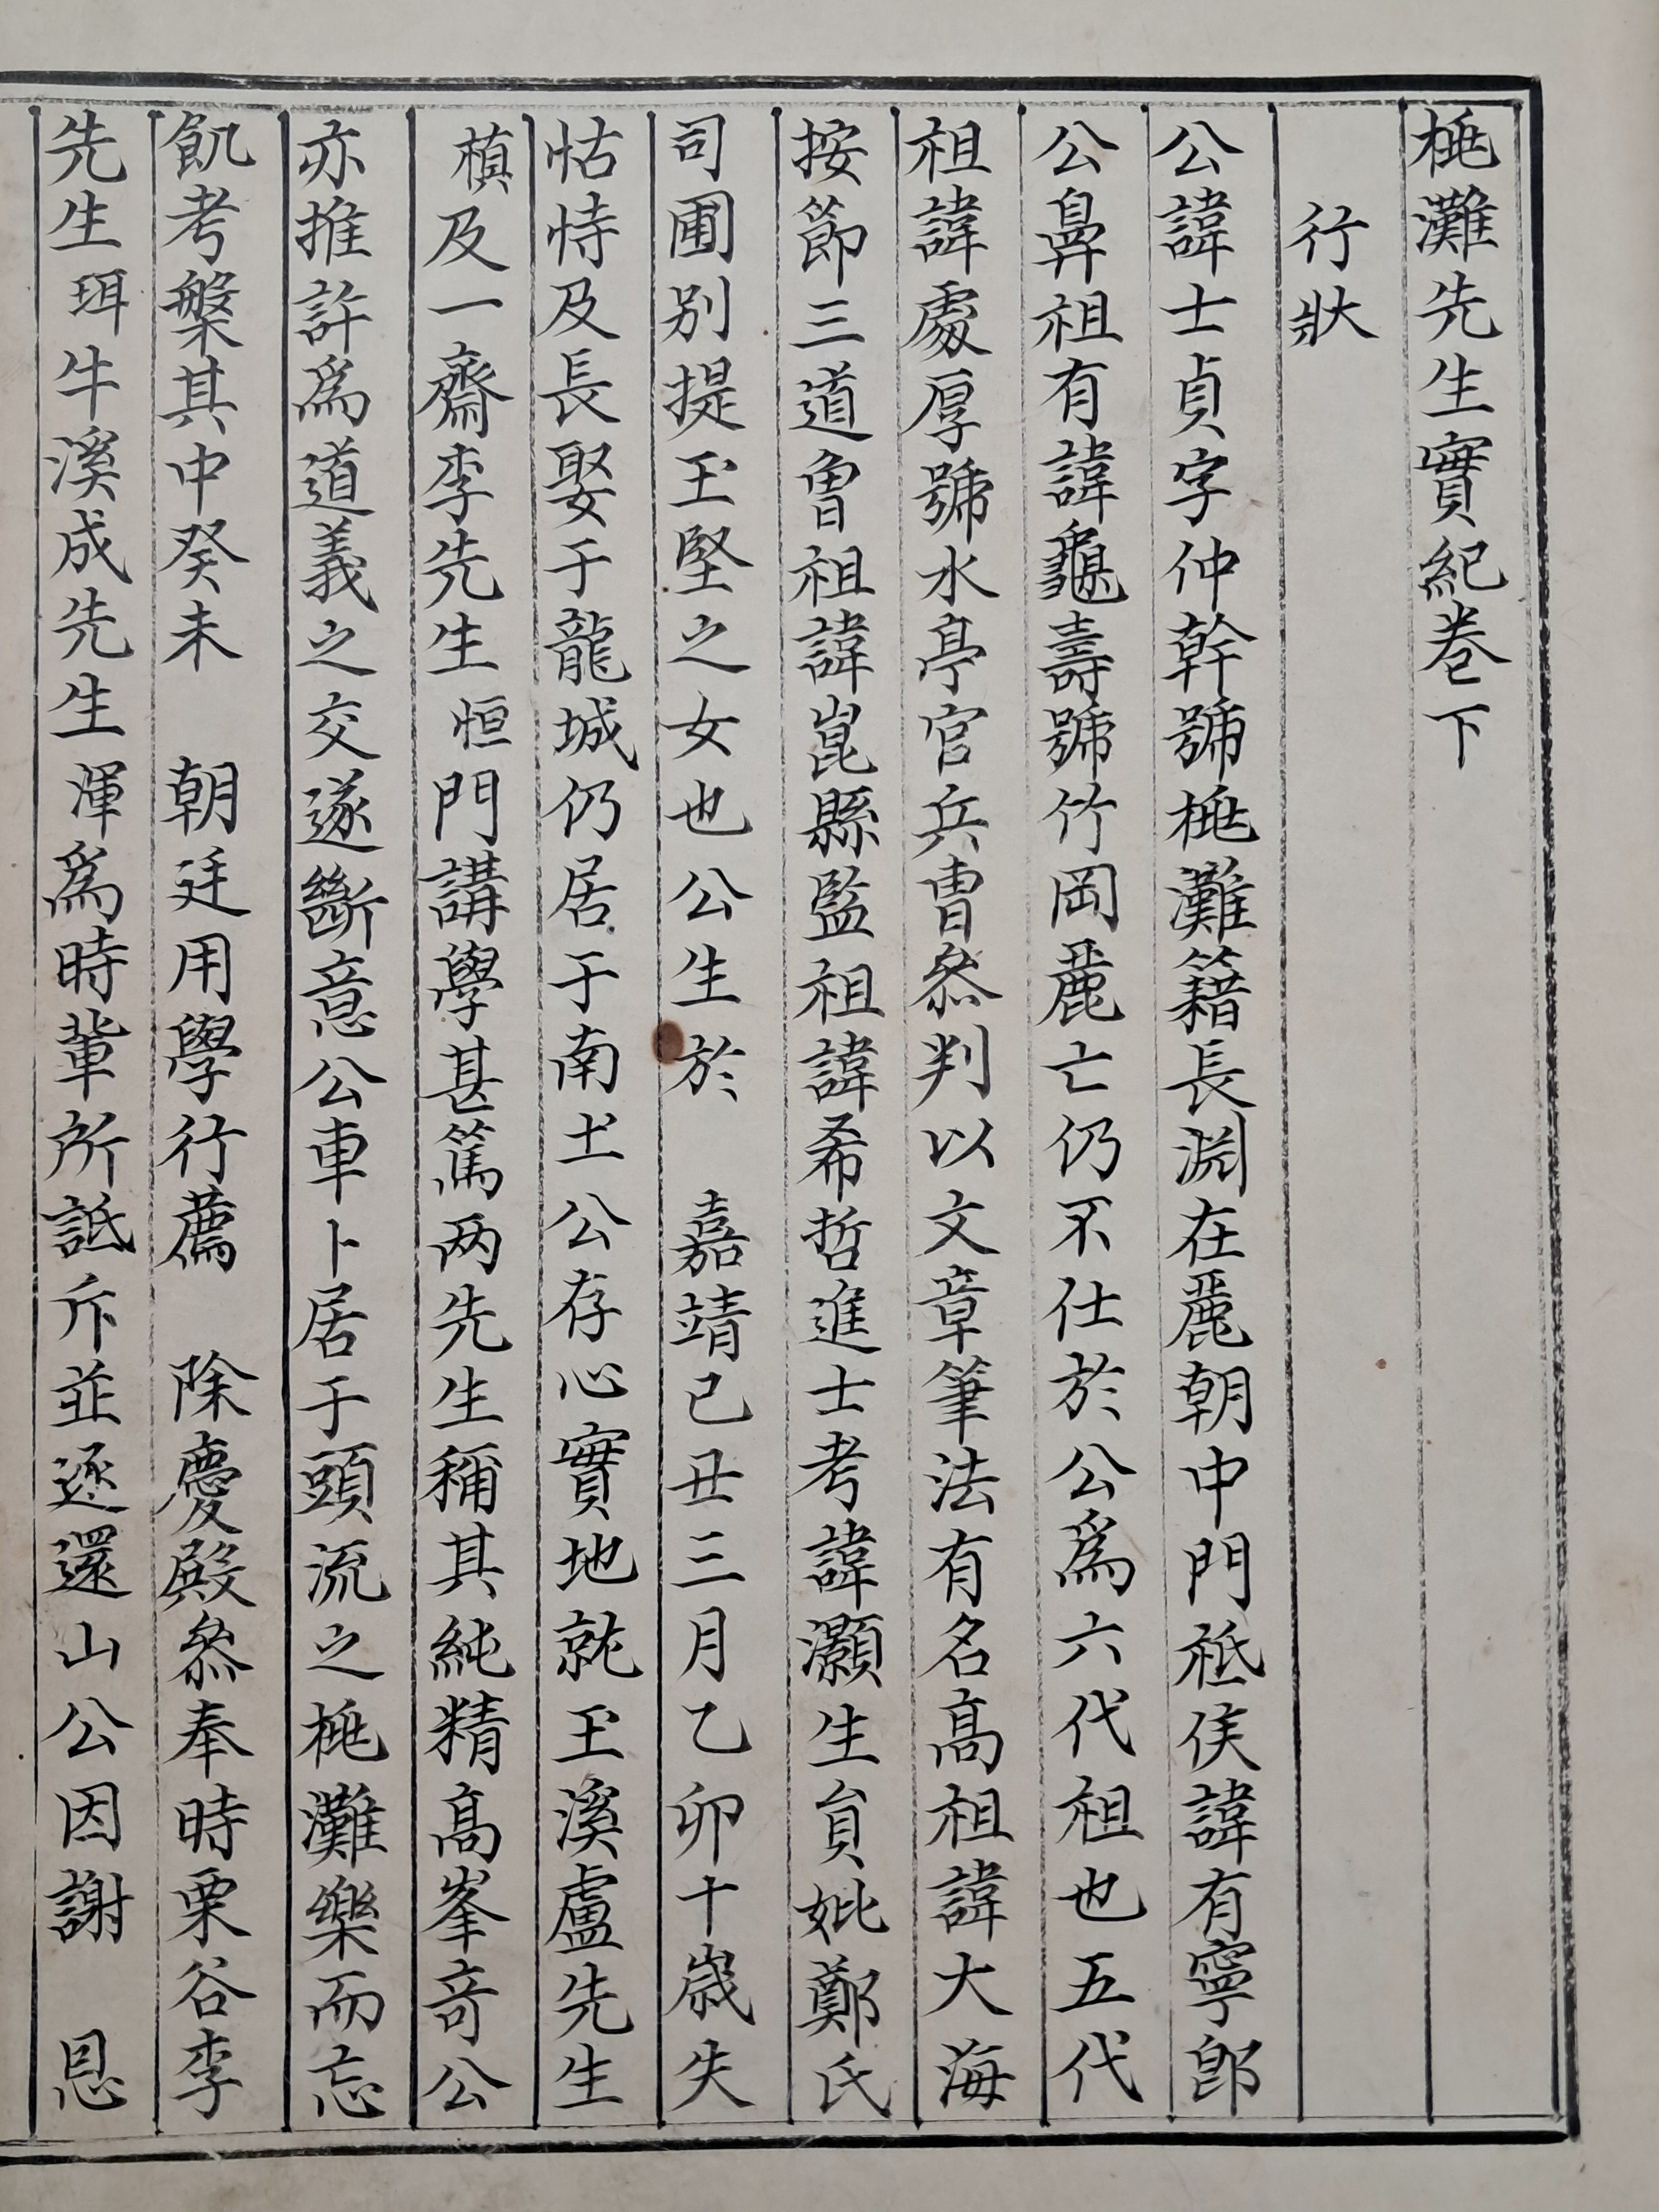 桃灘先生實紀卷下
行狀
公諱士貞字仲幹號桃灘籍長淵在麗朝中門祗侯諱有寧卽
公鼻祖有諱龜壽號竹岡麗亡仍不仕於公爲六代祖也五代
祖諱處厚號水亭官兵曺叅判以文章筆法有名高祖諱大海
按節三道曾祖諱崑縣監祖諱希哲進士考諱灝生員妣鄭氏
司圃別提玉堅之女也公生於 嘉靖己丑三月乙卯十歲失
怙恃及長娶于龍城仍居于南土公存心實地就玉溪盧先生
禛及一齋李先生恒門講學甚篤两先生稱其純精高峯奇公
亦推許爲道義之交遂斷意公車卜居于頭流之桃灘樂而忘
飢考槃其中癸未 朝廷用學行薦 除慶殿叅奉時栗谷李
先生珥牛溪成先生渾爲時軰所詆斥並逐還山公因謝 恩